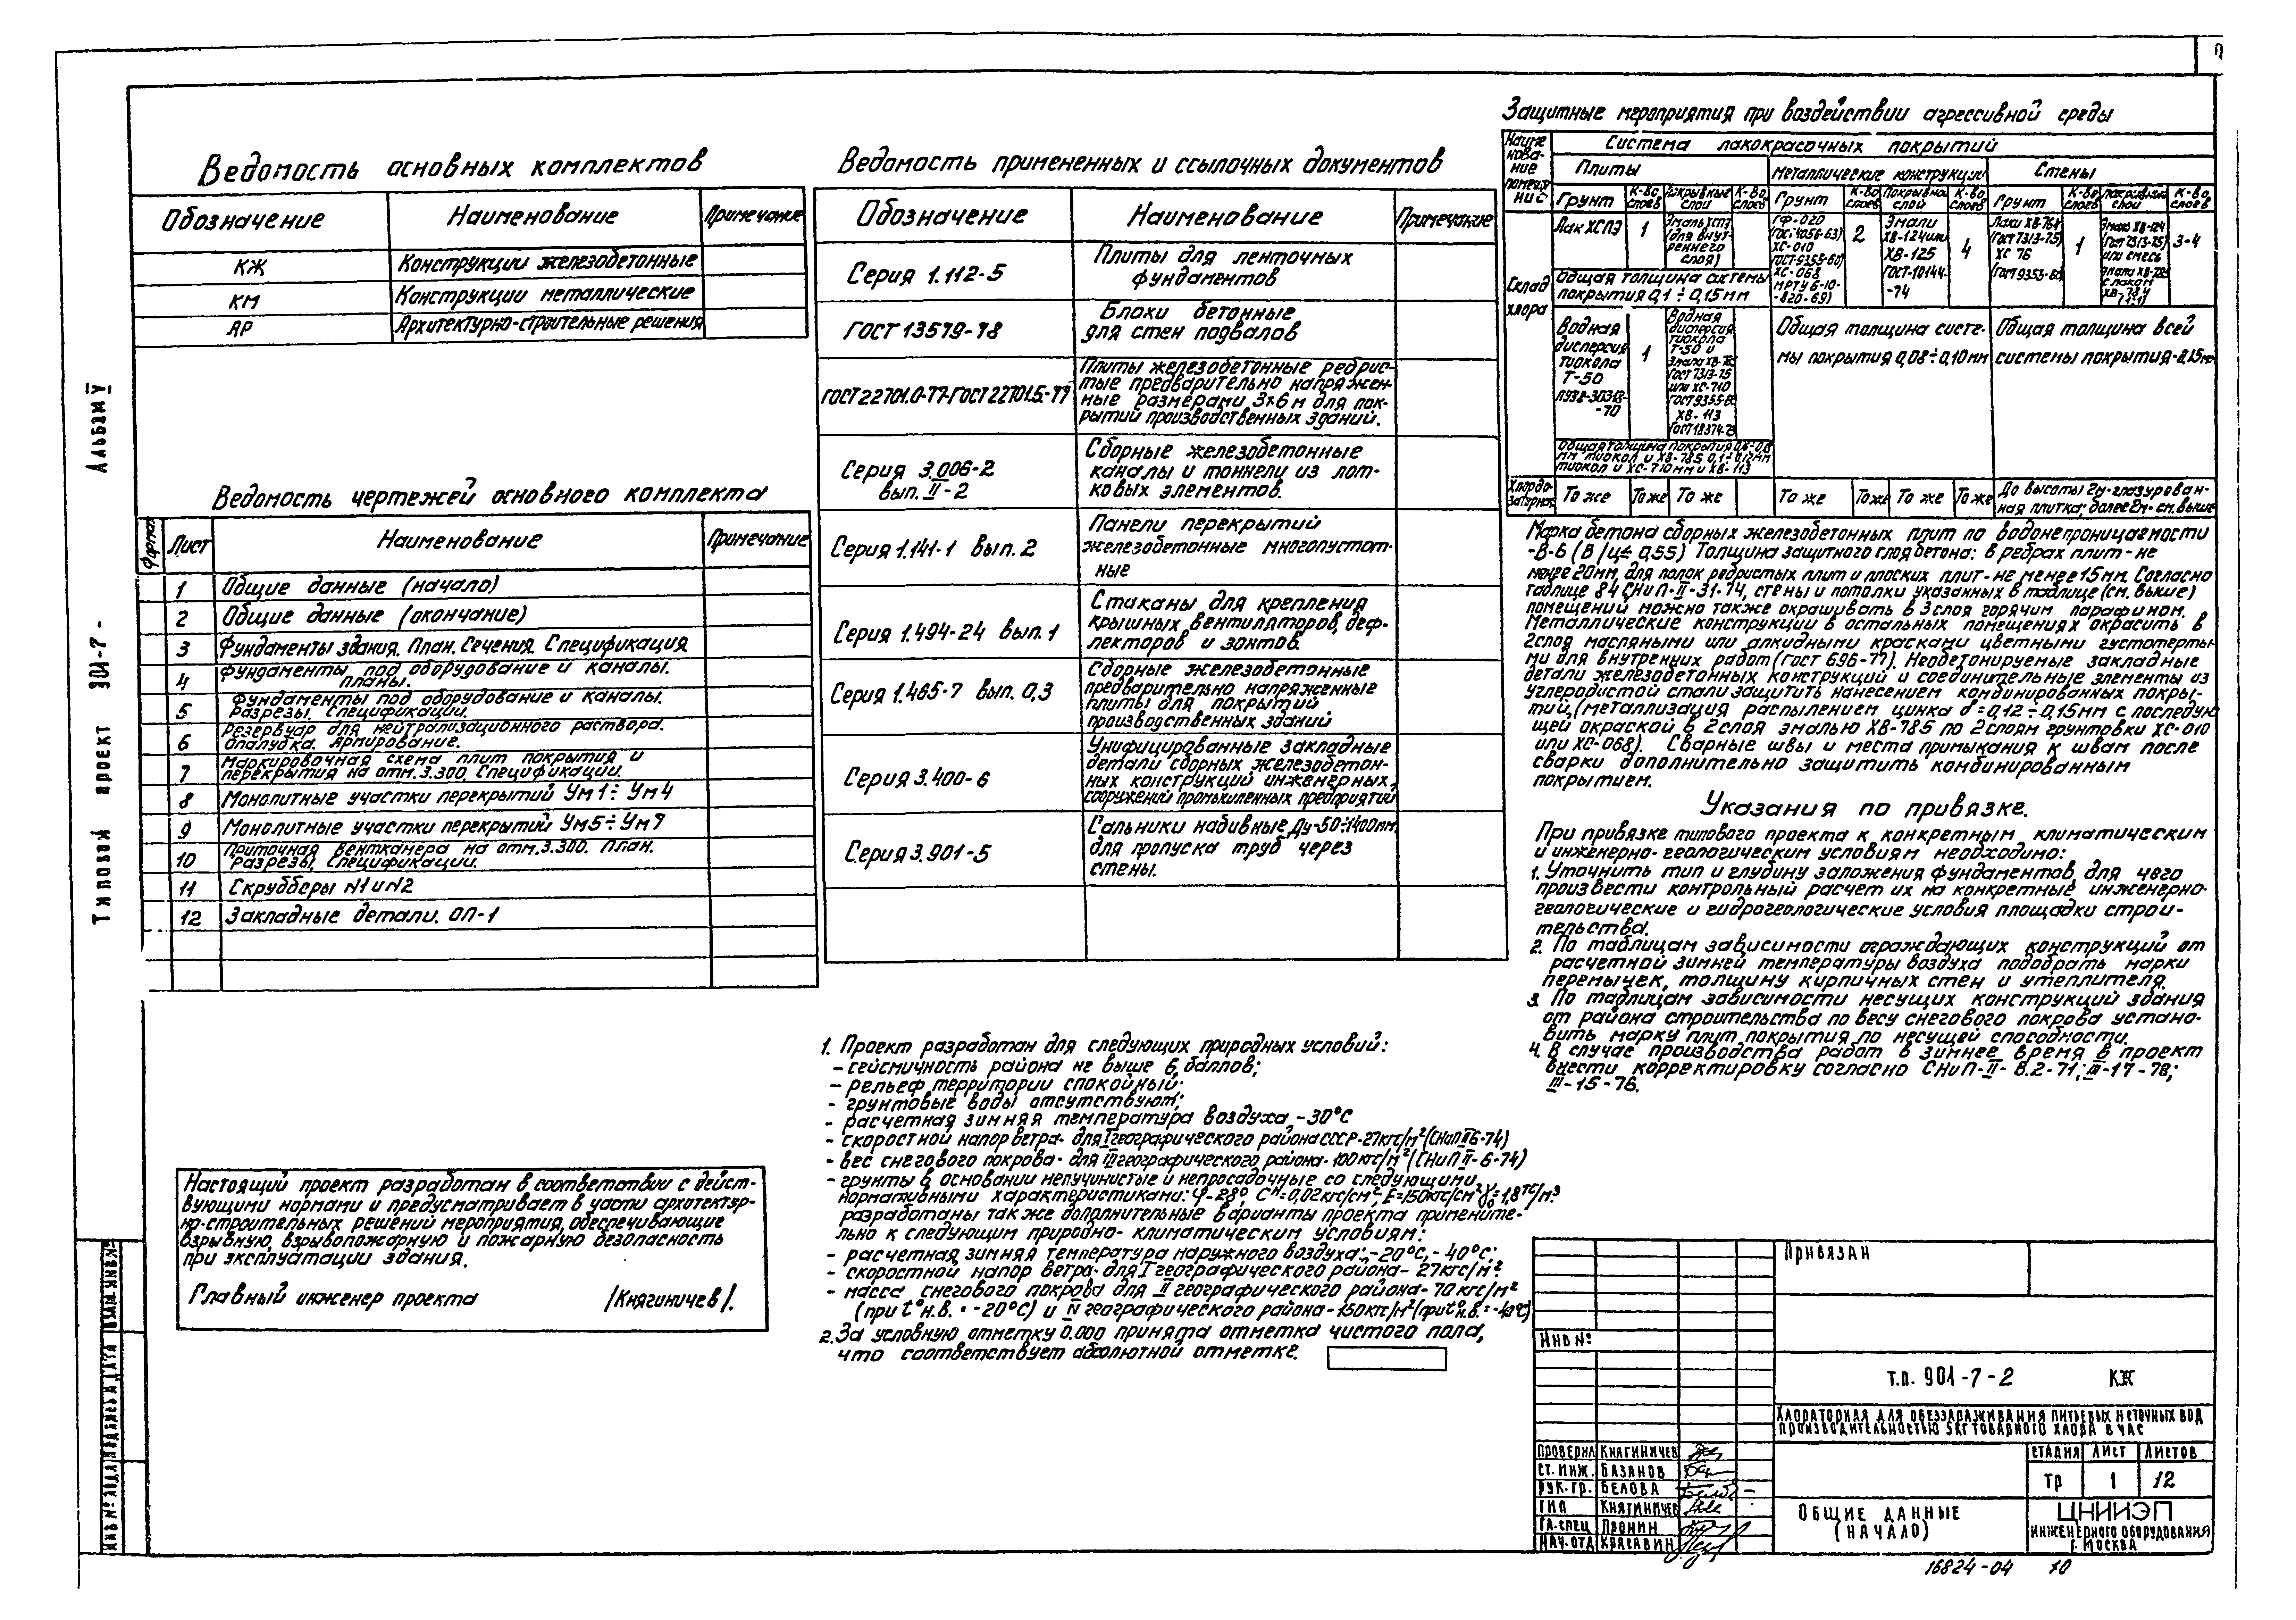 Альбом V
Типовой проект 901-7-
Ведомость основных комплектов
Обозначение Наименование Примечание
КЖ Конструкции железобетонные
КМ Конструкции металлические
АР Архитектурно-строительные решения
Ведомость чертежей основного комплекта
Формат Лист Наименование Примечание
1 Общие данные (начало)
2 Общие данные (окончание)
3 Фундаменты здания. План. Сечения. Спецификация
4 Фундаменты под оборудование и каналы.
планы.
5 Фундаменты под оборудование и каналы.
Разрезы. Спецификации.
6 Резервуар для нейтрализационного раствора.
Опалубка. Армирование.
7 Маркировочная схема плит покрытия и
перекрытия на отм. 3.300. Спецификации.
8 Монолитные участки перекрытий Ум1÷Ум4
9 Монолитные участки перекрытий Ум5÷Ум7
10 Приточная венткамера на отм. 3.300. План.
Разрезы. Спецификации.
11 Скрубберы N1 и N2
12 Закладные детали. ОП-1
Настоящий проект разработан в соответствии с дейст-
вующими нормами и предусматривает в части архитектур-
но-строительных решений мероприятия, обеспечивающие
взрывную, взрывопожарную и пожарную безопасность
при эксплуатации здания.
Главный инженер проекта /Княгиничев/.
Ведомость примененных и ссылочных документов
Обозначение Наименование Примечание
Серия 1.112-5 Плиты для ленточных
фундаментов
ГОСТ 13579-78 Блоки бетонные
для стен подвалов
ГОСТ 22701.0-77-ГОСТ 22701.5-77 Плиты железобетонные ребрис-
тые предварительно напряжен-
ные размерами 3х6м для пок-
рытий производственных зданий.
Серия 3.006-2
вып. II-2
Сборные железобетонные
каналы и тоннели из лот-
ковых элементов.
Серия 1.141-1 вып. 2 Панели перекрытий
железобетонные многопустот-
ные
Серия 1.494-24 вып. 1 Стаканы для крепления
крышных вентиляторов, деф-
лекторов и зонтов.
Серия 1.465-7 вып. 0,3 Сборные железобетонные
предварительно напряженные
плиты для покрытий
производственных зданий
Серия 3.400-6 Унифицированные закладные
детали сборных железобетон-
ных конструкций инженерных
сооружений промышленных предприятий
Серия 3.901-5 Сальники набивные Ду-50÷1400мм
для пропуска труб через
стены.
1. Проект разработан для следующих природных условий:
- сейсмичность района не выше 6 баллов;
- рельеф территории спокойный;
- грунтовые воды отсутствуют;
- расчетная зимняя температура воздуха -30°С
- скоростной напор ветра- для I географического района СССР-27кгс/м² (СНиП II-6-74)
- вес снегового покрова- для III географического района- 100кгс/м² (СНиП II-6-74)
- грунты в основании непучинистые и непросадочные со следующими
нормативными характеристиками: φ-28°, Сн=0,02кгс/см², Е=150кгс/см², γ₀=1,8тс/м³
разработаны также дополнительные варианты проекта примените-
льно к следующим природно-климатическим условиям:
- расчетная зимняя температура наружного воздуха: -20°С, - 40°С;
- скоростной напор ветра- для I географического района- 27кгс/м²
- масса снегового покрова для II географического района- 70кгс/м²
(при t°н.в. = -20°С) и IV географического района-150кгс/м² (при t°н.в.=-40°С)
2. За условную отметку 0.000 принята отметка чистого пола,
что соответствует абсолютной отметке.
Защитные мероприятия при воздействии агрессивной среды
Наиме
нова-
ние
помеще
ний
Система лакокрасочных покрытий
Плиты Металлические конструкции Стены
Грунт К-во слоев Покрывные слои К-во слоев Грунт К-во слоев Покрывной слой К-во слоев Грунт К-во слоев Покрывные слои К-во слоев
Склад
хлора
Лак ХСПЭ 1 Эмаль ХСПЭ
(для внут-
реннего
слоя)
ГФ-020
(ГОСТ4056-63)
ХС-010
ГОСТ9355-60)
ХС-068
МРТУ6-10-
-820-69)
2
Эмали
ХВ-124 или
ХВ-125
ГОСТ-10144-
-74
4
Лаки ХВ-784
(ГОСТ7313-75)
ХС 76
(ГОСТ9355-60)
1
Эмаль ХВ-124
или смесь
эмали ХВ-785
с лаком
ХВ-784
(1:1)
3-4
Общая толщина системы
покрытия 0,1÷0,15мм
Водная
дисперсия
тиокола
Т-50
-70
1
Водная
дисперсия
тиокола
Т-50 и
Эмали ХВ-785
ГОСТ7313-75
или ХС-710
ГОСТ9355-60
ХВ-113
ГОСТ18374-73
Общая толщина систе-
мы покрытия 0,08÷0,10мм
Общая толщина всей
системы покрытия-0,15мм
Общая толщина покрытия 0,6-0,8
мм тиокол и ХВ-785 0,1÷0,12мм
тиокол и ХС-710мм и ХВ-113
Хлордо-
заторная
То же То же То же То же То же То же То же До высоты 2м-глазурован-
ная плитка; более 2м-см. выше
Марка бетона сборных железобетонных плит по водонепроницаемости
-В-6 (В/ц≤ 0,55) Толщина защитного слоя бетона: в ребрах плит-не
менее 20мм, для полок ребристых плит и плоских плит-не менее 15мм. Согласно
таблице 84 СНиП-II-31-74, стены и потолки указанных в таблице (см. выше)
помещений можно также окрашивать в 3 слоя горячим парафином.
Металлические конструкции в остальных помещениях окрасить в
2 слоя масляными или алкидными красками цветными густотерты-
ми для внутренних работ (ГОСТ 696-77). Необетонируемые закладные
детали железобетонных конструкций и соединительные элементы из
углеродистой стали защитить нанесением комбинированных покры-
тий, (металлизация распылением цинка σ=0,12÷0,15мм с последую
щей окраской в 2 слоя эмалью ХВ-785 по 2 слоям грунтовки ХС-010
или ХС-068). Сварные швы и места примыкания к швам после
сварки дополнительно защитить комбинированным
покрытием.
Указания по привязке.
При привязке типового проекта к конкретным климатическим
и инженерно-геологическим условиям необходимо:
1. Уточнить тип и глубину заложения фундаментов, для чего
произвести контрольный расчет их на конкретные инженерно-
геологические и гидрогеологические условия площадки строи-
тельства.
2. По таблицам зависимости ограждающих конструкций от
расчетной зимней температуры воздуха подобрать марки
перемычек, толщину кирпичных стен и утеплителя.
3. По таблицам зависимости несущих конструкций здания
от района строительства по весу снегового покрова устано-
вить марку плит покрытия по несущей способности.
4. В случае производства работ в зимнее время в проект
внести корректировку согласно СНиП-II-В.2-71; III-17-78;
III-15-76.
Привязан
Инв №
т.п. 901-7-2 КЖ
Хлораторная для обеззараживания питьевых и сточных вод
производительностью 5кг товарного хлора в час
Проверил Княгиничев
Ст. инж. Базанов
Рук. гр. Белова
ГИП Княгиничев
Гл. спец Пронин
Нач. отд Красавин
Стадия Лист Листов
ТР 1 12
Общие данные
(начало)
ЦНИИЭП
инженерного оборудования
г. Москва
Инв № подл Подпись и дата Взам. инв №
16824-04 10